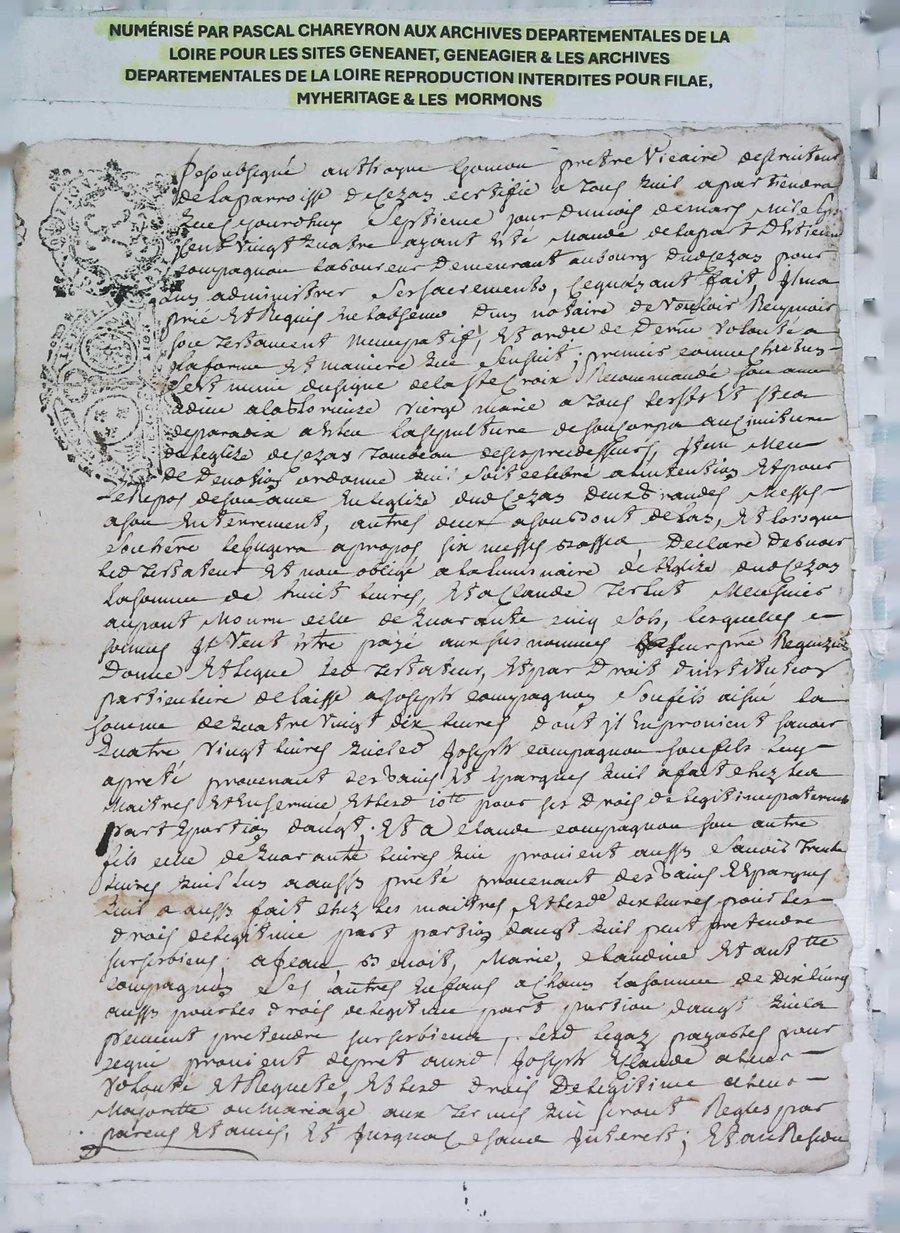 NUMÉRISÉ PAR PASCAL CHAREYRON AUX ARCHIVES DEPARTEMENTALES DE LA
LOIRE POUR LES SITES GENEANET, GENEAGIER & LES ARCHIVES
DEPARTEMENTALES DE LA LOIRE REPRODUCTION INTERDITES POUR FILAE,
MYHERITAGE & LES MORMONS
anthoyne pretre Vicaire
de la parroisse de Cezas certifie a tous quil apartiendra
que cejourdhuy septieme jour du mois de mars mil sept
cent vingt quatre ayant esté mandé de la part
compagnon laboureur demeurant au bourg dud Cezas pour
luy administrer ses sacrements, ce quayant fait, il ma
prié et requis en labsence dun notaire de vouloir recepvoir
son testament nuncupatif, et ordre de derniere volonté a
la forme et maniere que sensuit; premis comme
sest muni du signe de la ste Croix, Recommandé son ame
a dieu a la glorieuse vierge marie a tous les sts et stes
de paradix a esleu la sepulture de son corps au cimitiere
de leglize de Cezas tombeau de ses predecesseurs, Item meu
de devotion ordonne quil soit celebré a lintention et pour
le repos de son ame en leglize dud Cezas deux grandes messes
a son enterrement, autres deux a son bout de lan, et lorsque
son here le jugera a propos six messes basses, Declare debvoir
led testateur et non obligé a la luminaire de leglize dud Cezas
la somme de huit livres, et a Claude
au pont celle de quarante cinq sols, lesquelles
sommes il veut estre payé aux susnommes
Donne et legue led testateur, et par droit dinstitution
particuliere delaisse a Joseph compagnon son fils aisne la
somme de quatre vingt dix livres dont il en provient savoir
quatre vingt livres que led Joseph compagnon son fils luy
a preté provenant des gains et epargnes quil a fait chez les
maitres et en service et lesd 10tt pour ses drois de legitime paternel
part et portion daugt. et a claude compagnon son autre
fils celle de quarante livres qui provient aussy scavoir trente
livres quil luy a aussy preté provenant des gains et epargnes
quil a aussy fait chez les maitres et lesd dix livres pour les
drois de legitime part portion daugt quil peut pretendre
sur ses biens; a Jean, Benoit, Marie, claudine et anttte
compagnon ses autres enfans a chacun la somme de dix livres
aussy pour les drois de legitime part portion daugt quils
peuvent pretendre sur ses biens, lesd legaz payables pour
ce qui provient de pret ausd Joseph et Claude a leur
volonté et requete, et lesd drois de legitime a leur
majorité ou mariage aux termes qui seront reglés par
parens et amis, et jusqua ce sans interest; et au residu